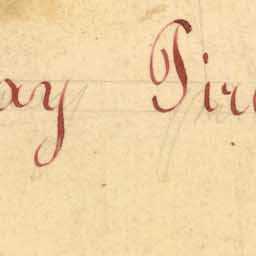 ay Tir